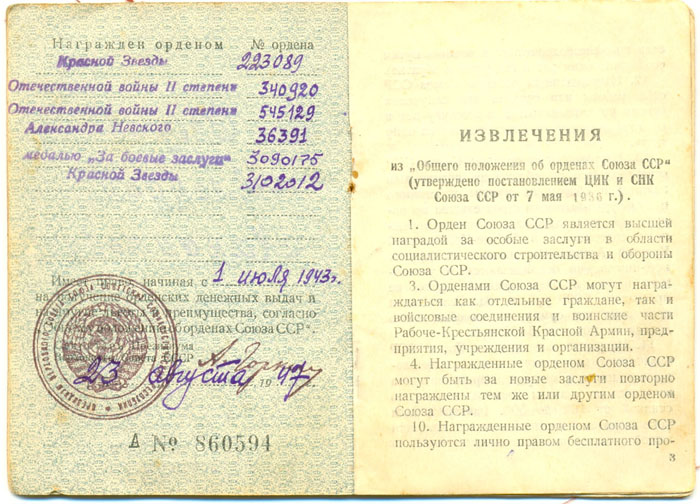 Награжден орденом № ордена
Красной Звезды 223089
Отечественной войны II степени 340920
Отечественной войны II степени 545129
Александра Невского 36391
медалью „За боевые заслуги“ 3090175
Красной Звезды 3102012
начиная с 1 июля 1943 г.
на получение орденских денежных выдач и
преимущества, согласно
орденах Союза ССР“.
Президиума
Верховного Совета СССР
23 августа 1947
А № 860594
ИЗВЛЕЧЕНИЯ
из „Общего положения об орденах Союза ССР“
(утверждено постановлением ЦИК и СНК
Союза ССР от 7 мая 1936 г.).
1. Орден Союза ССР является высшей
наградой за особые заслуги в области
социалистического строительства и обороны
Союза ССР.
3. Орденами Союза ССР могут награ-
ждаться как отдельные граждане, так и
войсковые соединения и воинские части
Рабоче-Крестьянской Красной Армии, пред-
приятия, учреждения и организации.
4. Награжденные орденом Союза ССР
могут быть за новые заслуги повторно
награждены тем же или другим орденом
Союза ССР.
10. Награжденные орденом Союза ССР
пользуются лично правом бесплатного про-
3